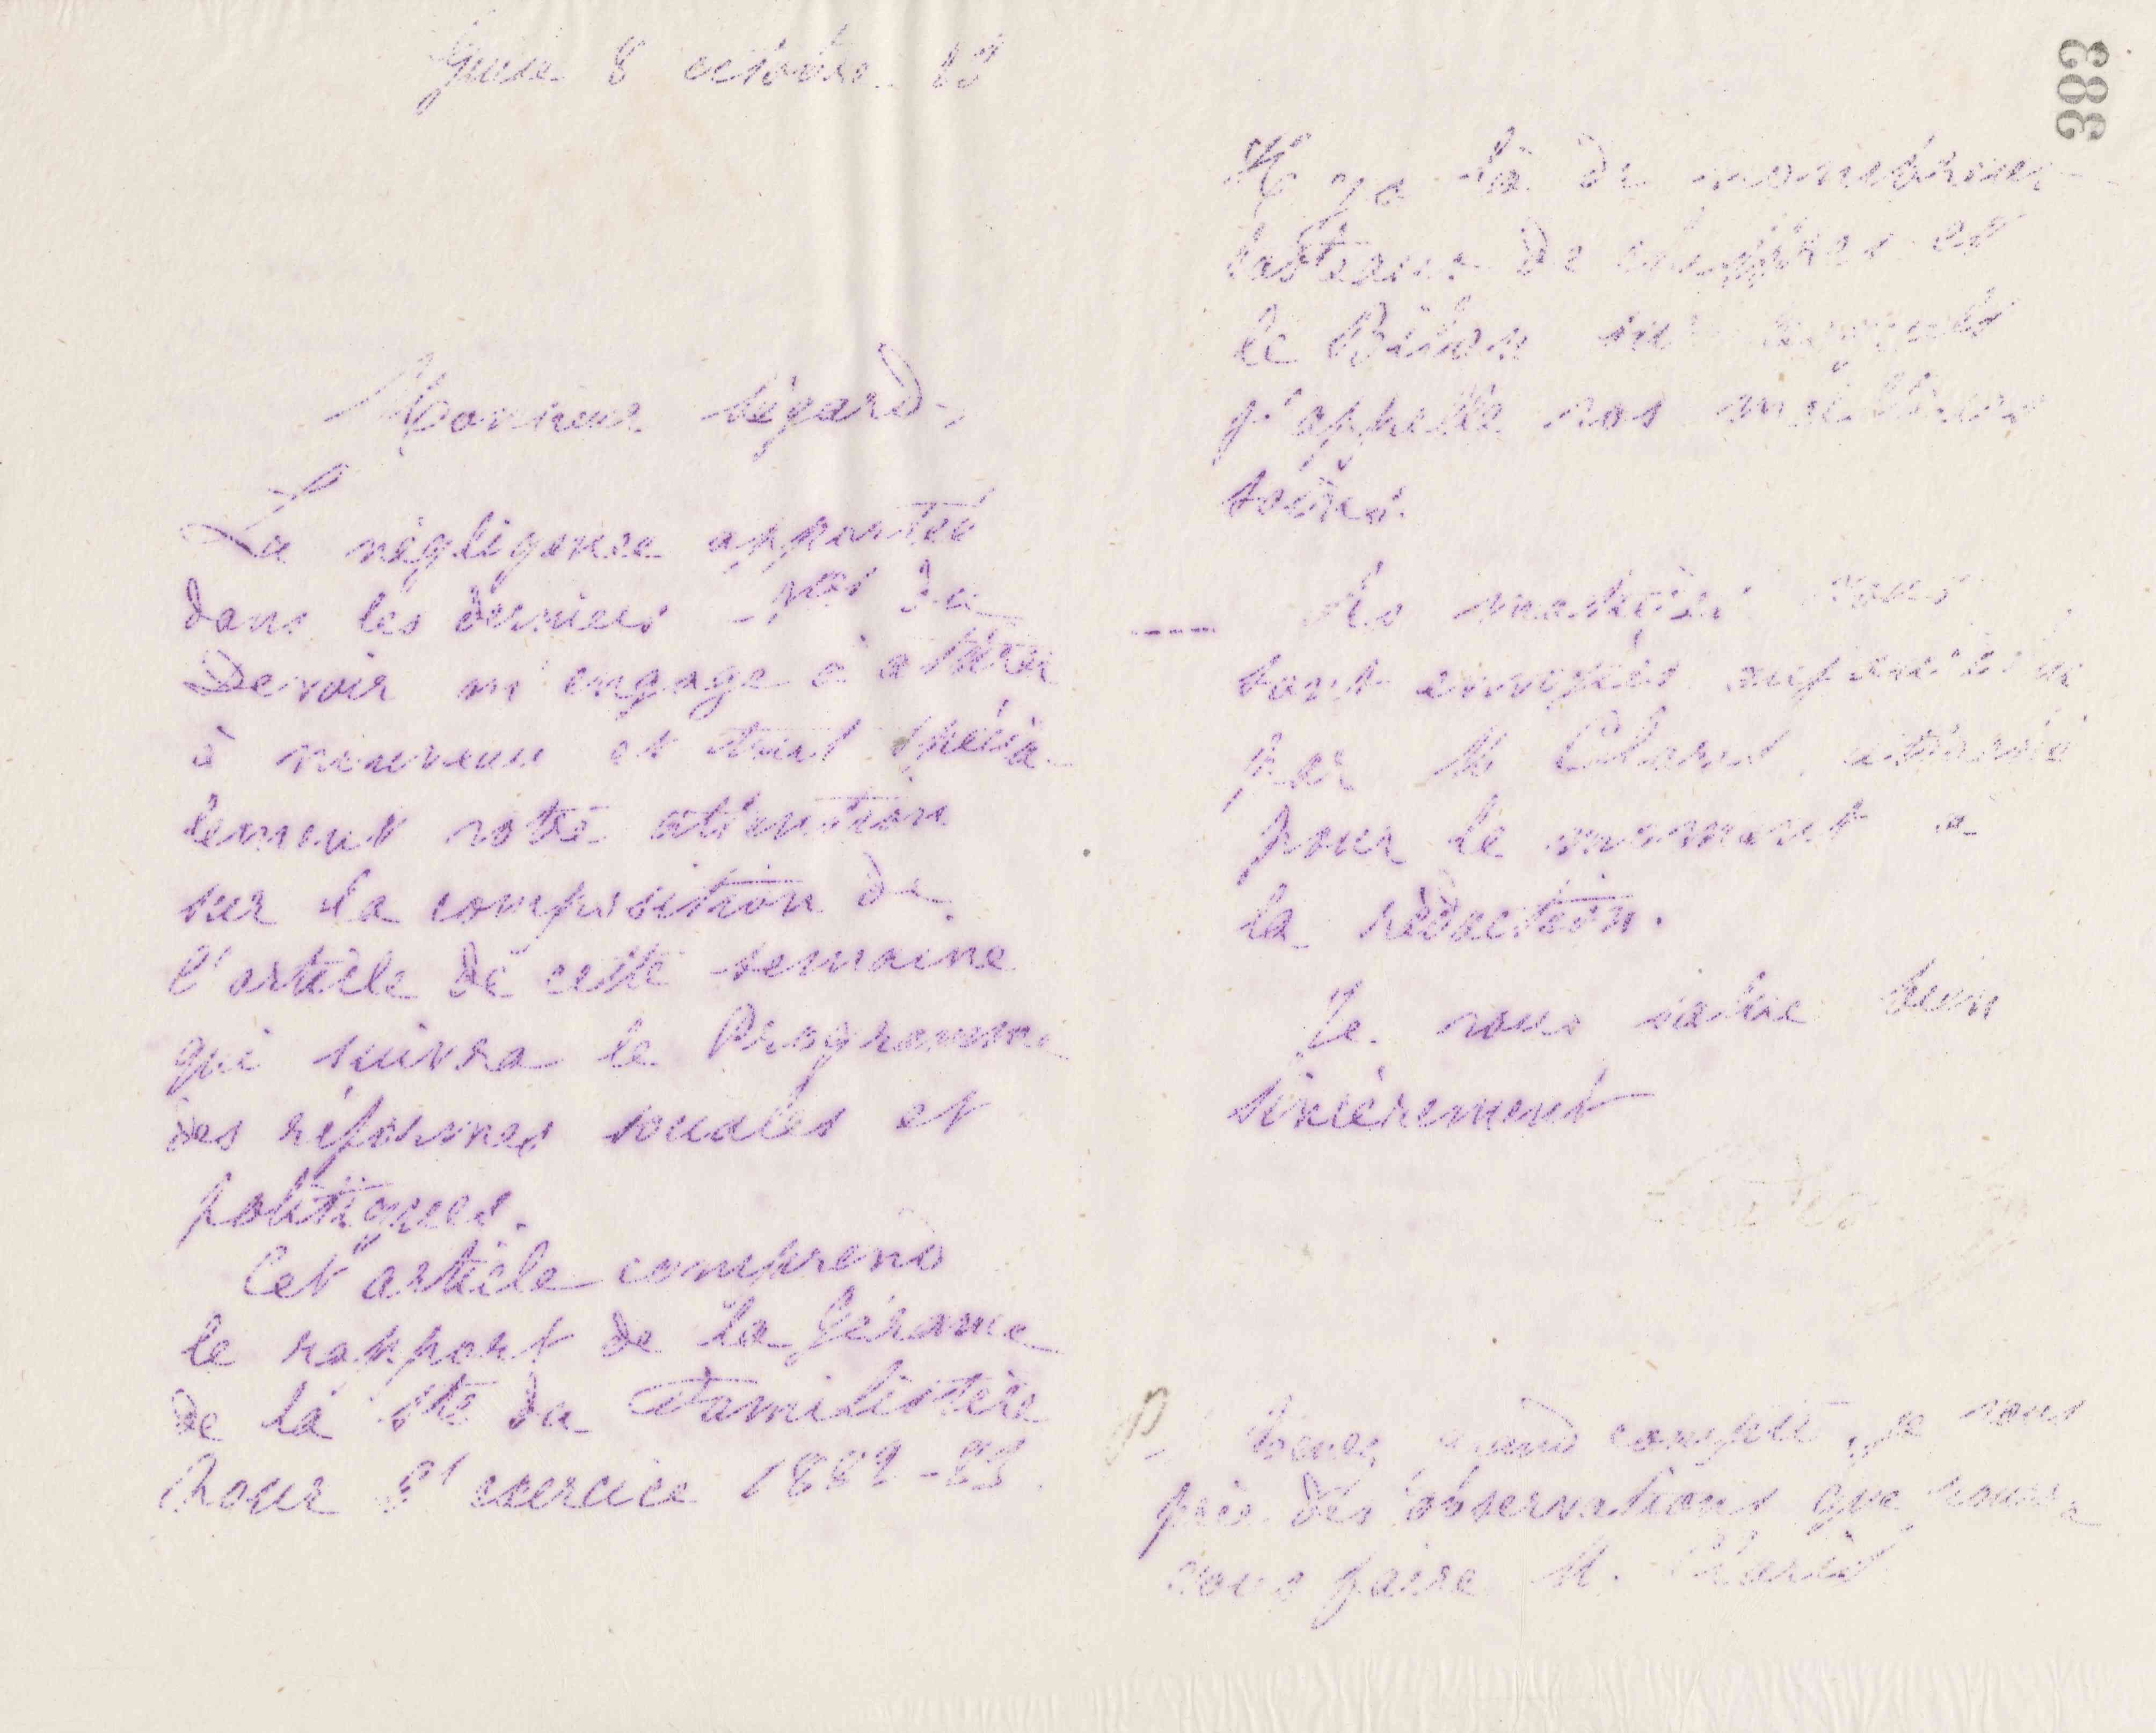 Guise 8 octobre 83
Monsieur Ségard,
La négligence apportée
dans les derniers nos du
Devoir m'engage à attirer
à nouveau et tout spécia-
lement votre attention
sur la composition de
l'article de cette semaine
qui suivra le Programme
des réformes sociales et
politiques.
Cet article comprend
le rapport de la Gérance
de la Sté du Familistère
pour l'exercice 1882-83.
383
Il y a là de nombreux
tableaux de chiffres et
le Bilan sur lesquels
j'appelle vos meilleurs
soins.
Les matières vous
sont envoyées aujourd'hui
par M Charut, attaché
pour le moment à
la rédaction.
Je vous salue bien
sincèrement
P Tenez grand compte je vous
prie des observations que pourra
vous faire M. Charut